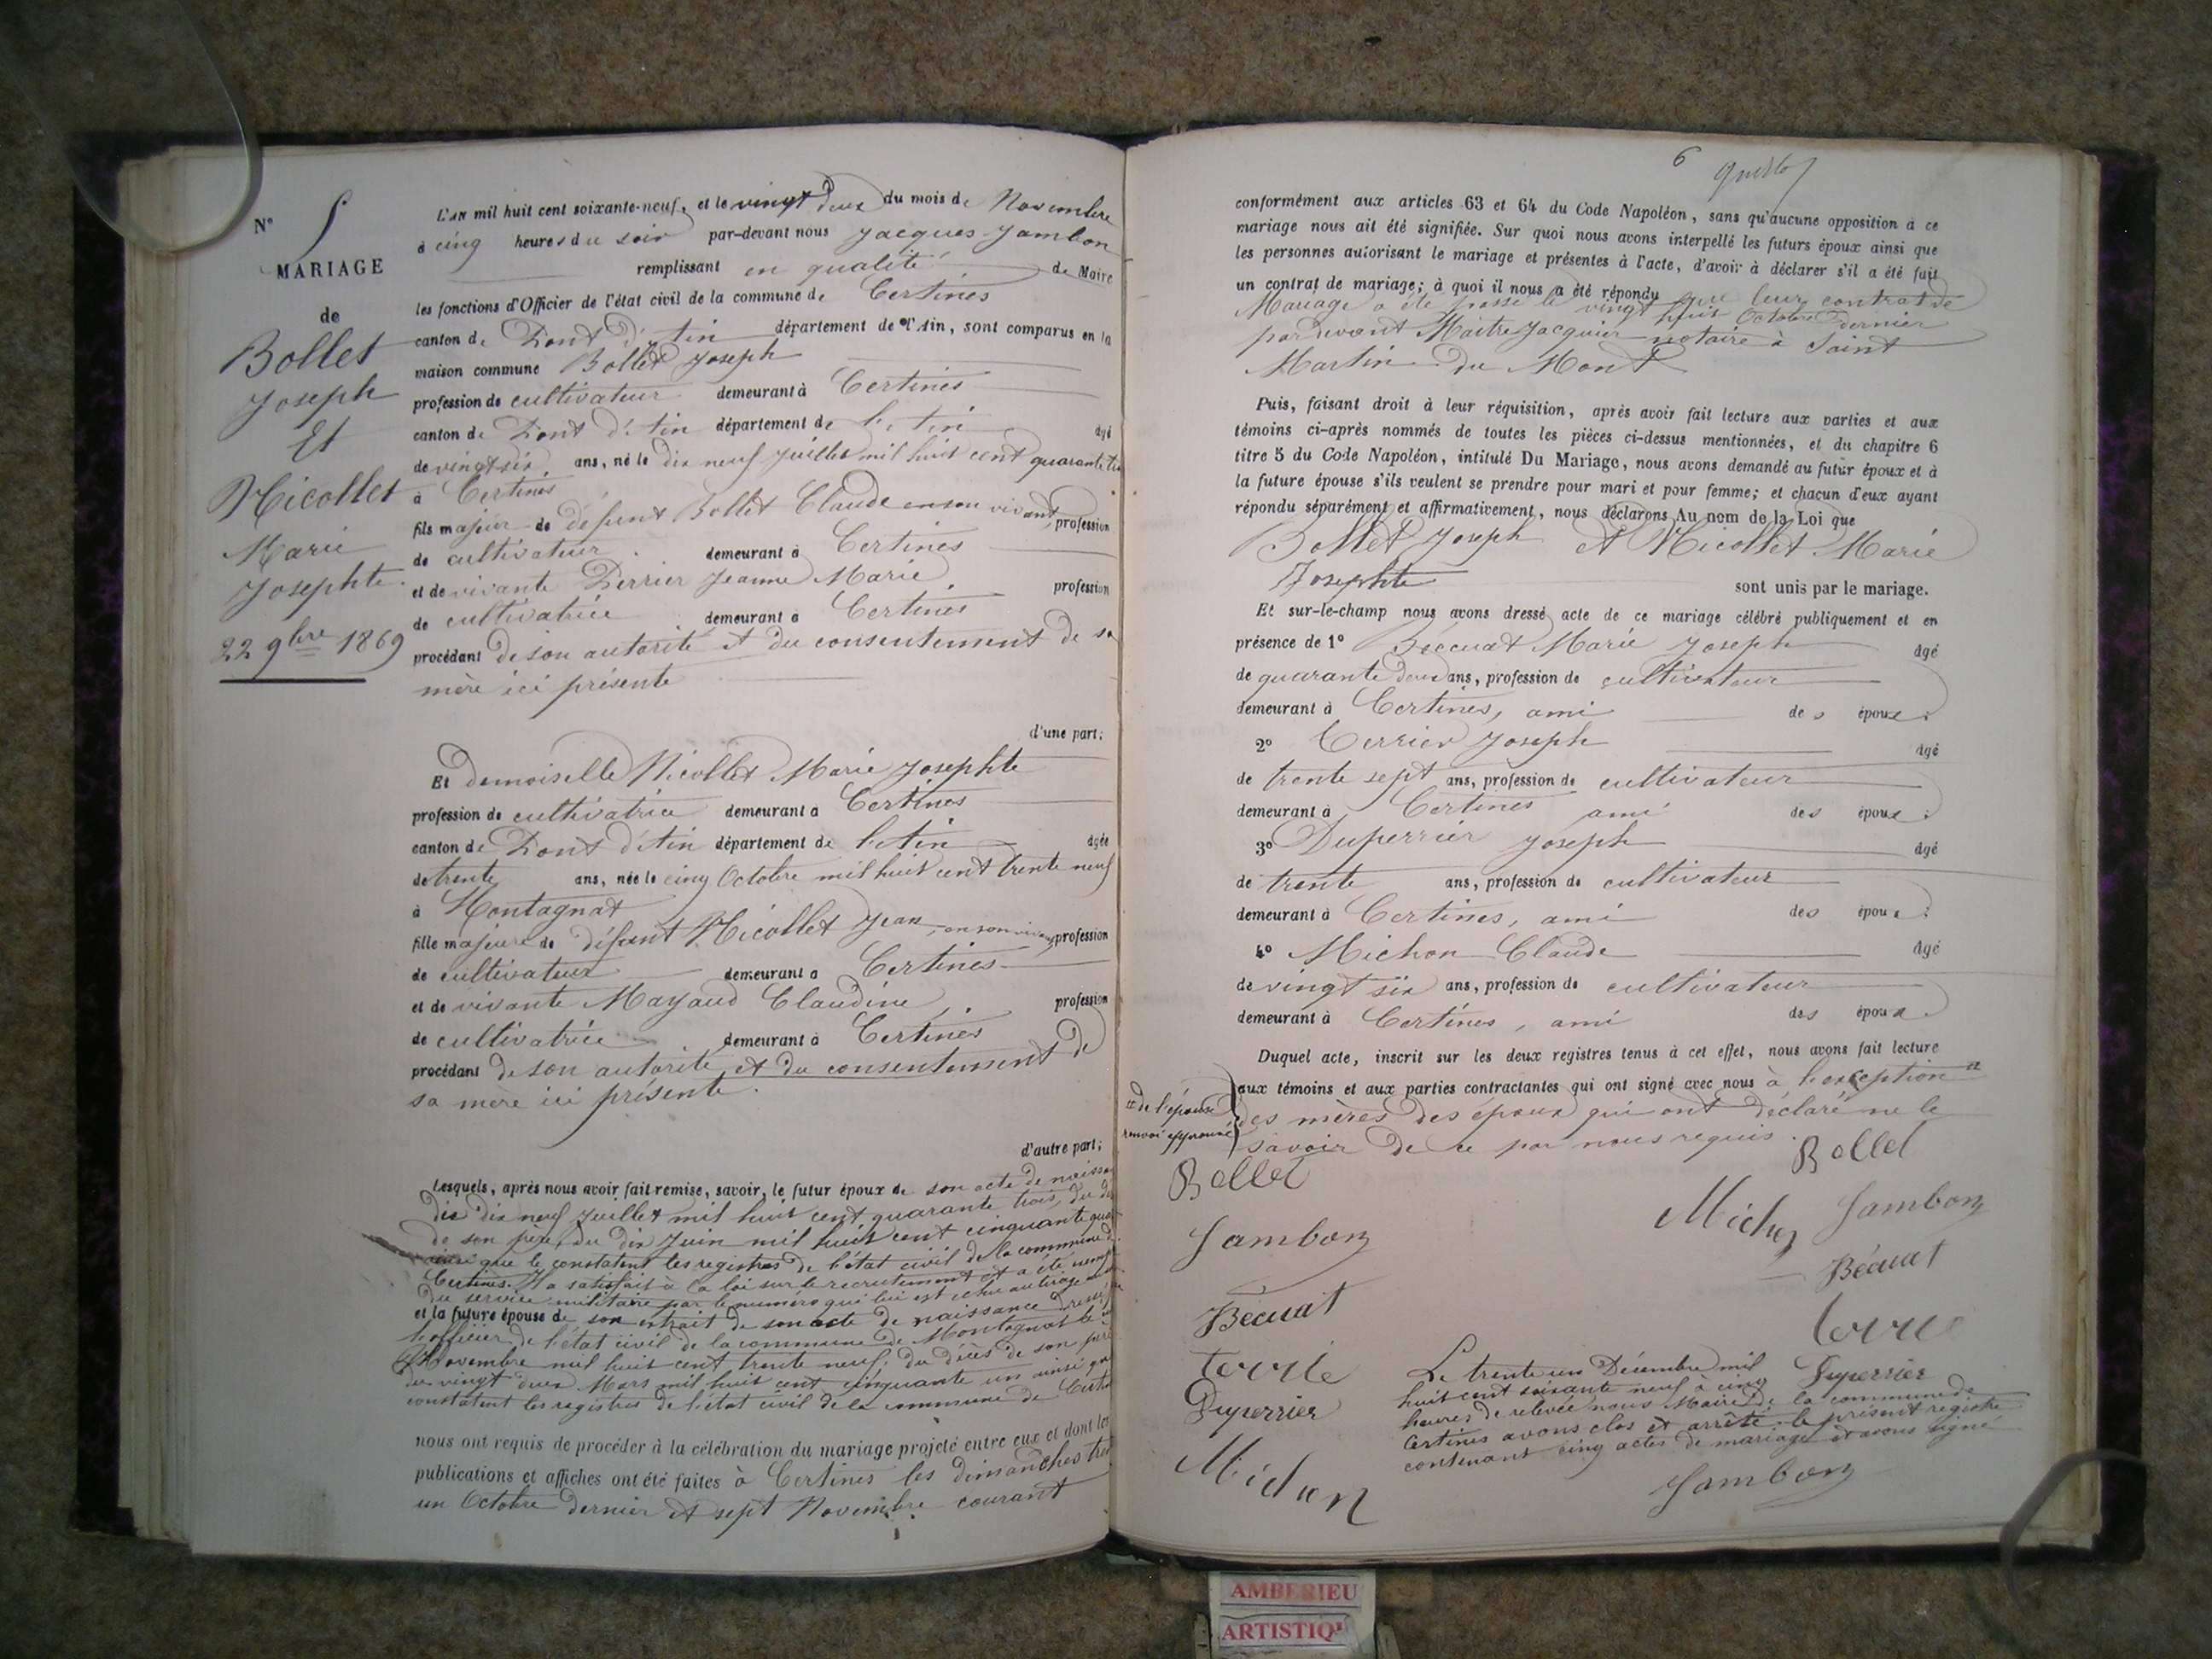 N° 5
MARIAGE
de
Bollet
Joseph
Et
Nicollet
Marie
Josephte.
22 9bre 1869
L'AN mil huit cent soixante-neuf, et le vingt deux du mois de Novembre
à cinq heures du soir par-devant nous Jacques Jambon
remplissant en qualité de Maire
les fonctions d'Officier de l'état civil de la commune de Certines
canton de Pont d'Ain département de l'Ain, sont comparus en la
maison commune Bollet Joseph
profession de cultivateur demeurant à Certines
canton de Pont d'Ain département de l'Ain âgé
de vingt six ans, né le dix neuf Juillet mil huit cent quarante
à Certines
fils majeur de défunt Bollet Claude en son vivant, profession
de cultivateur demeurant à Certines
et de vivante Perrier Jeanne Marie, profession
de cultivatrice demeurant à Certines
procédant de son autorité et du consentement de sa
mère ici présente
d'une part;
Et demoiselle Nicollet Marie Josephte
profession de cultivatrice demeurant à Certines
canton de Pont d'Ain département de l'Ain âgée
de trente ans, née le cinq Octobre mil huit cent trente neuf
à Montagnat
fille majeure de défunt Nicollet Jean, en son vivant, profession
de cultivateur demeurant à Certines
et de vivante Mayaud Claudine, profession
de cultivatrice demeurant à Certines
procédant de son autorité et du consentement de
sa mère ici présente.
d'autre part;
Lesquels, après nous avoir fait remise, savoir, le futur époux de son acte de
dix neuf Juillet mil huit cent quarante trois, du
de son père, du dix Juin mil huit cent cinquante
ainsi que le constatent les registres de l'état civil de la commune de
Certines. Il a satisfait à la loi sur le recrutement et a été
du service militaire par le numéro qui lui est échu au tirage
et la future épouse de son extrait de son acte de naissance
l'officier de l'état civil de la commune de Montagnat le
Novembre mil huit cent trente neuf; du décès de son père
du vingt deux Mars mil huit cent cinquante un ainsi que
constatent les registres de l'état civil de la commune de
nous ont requis de procéder à la célébration du mariage projeté entre eux et dont les
publications et affiches ont été faites à Certines les dimanches
un Octobre dernier et sept Novembre courant
6
conformément aux articles 63 et 64 du Code Napoléon, sans qu'aucune opposition à ce
mariage nous ait été signifiée. Sur quoi nous avons interpellé les futurs époux ainsi que
les personnes autorisant le mariage et présentes à l'acte, d'avoir à déclarer s'il a été fait
un contrat de mariage; à quoi il nous a été répondu que leur contrat de
Mariage a été passé le vingt huit Octobre dernier
par devant Maître Jacquier notaire à Saint
Martin du Mont
Puis, faisant droit à leur réquisition, après avoir fait lecture aux parties et aux
témoins ci-après nommés de toutes les pièces ci-dessus mentionnées, et du chapitre 6
titre 5 du Code Napoléon, intitulé Du Mariage, nous avons demandé au futur époux et à
la future épouse s'ils veulent se prendre pour mari et pour femme; et chacun d'eux ayant
répondu séparément et affirmativement, nous déclarons Au nom de la Loi que
Bollet Joseph et Nicollet Marie
Josephte sont unis par le mariage.
Et sur-le-champ nous avons dressé acte de ce mariage célébré publiquement et en
présence de 1° Béccuat Marie Joseph âgé
de quarante deux ans, profession de cultivateur
demeurant à Certines, ami des époux;
2° Terrier Joseph âgé
de trente sept ans, profession de cultivateur
demeurant à Certines ami des époux;
3° Duperrier Joseph âgé
de trente ans, profession de cultivateur
demeurant à Certines, ami des époux;
4° Michon Claude âgé
de vingt six ans, profession de cultivateur
demeurant à Certines, ami des époux.
Duquel acte, inscrit sur les deux registres tenus à cet effet, nous avons fait lecture
aux témoins et aux parties contractantes qui ont signé avec nous à l'exception
de l'épouse
renvoi approuvé
des mères des époux qui ont déclaré ne le
savoir de ce par nous requis.
Bollet
Bollet
Jambon
Michon
Jambon
Bécuat
Bécuat
Duperrier
Duperrier
Michon
Le trente un Décembre mil
huit cent soixante neuf à cinq
heures de relevée nous Maire de la commune de
Certines avons clos et arrêté le présent registre
contenant cinq actes de mariage et avons signé
Jambon
AMBERIEU
ARTISTIQ